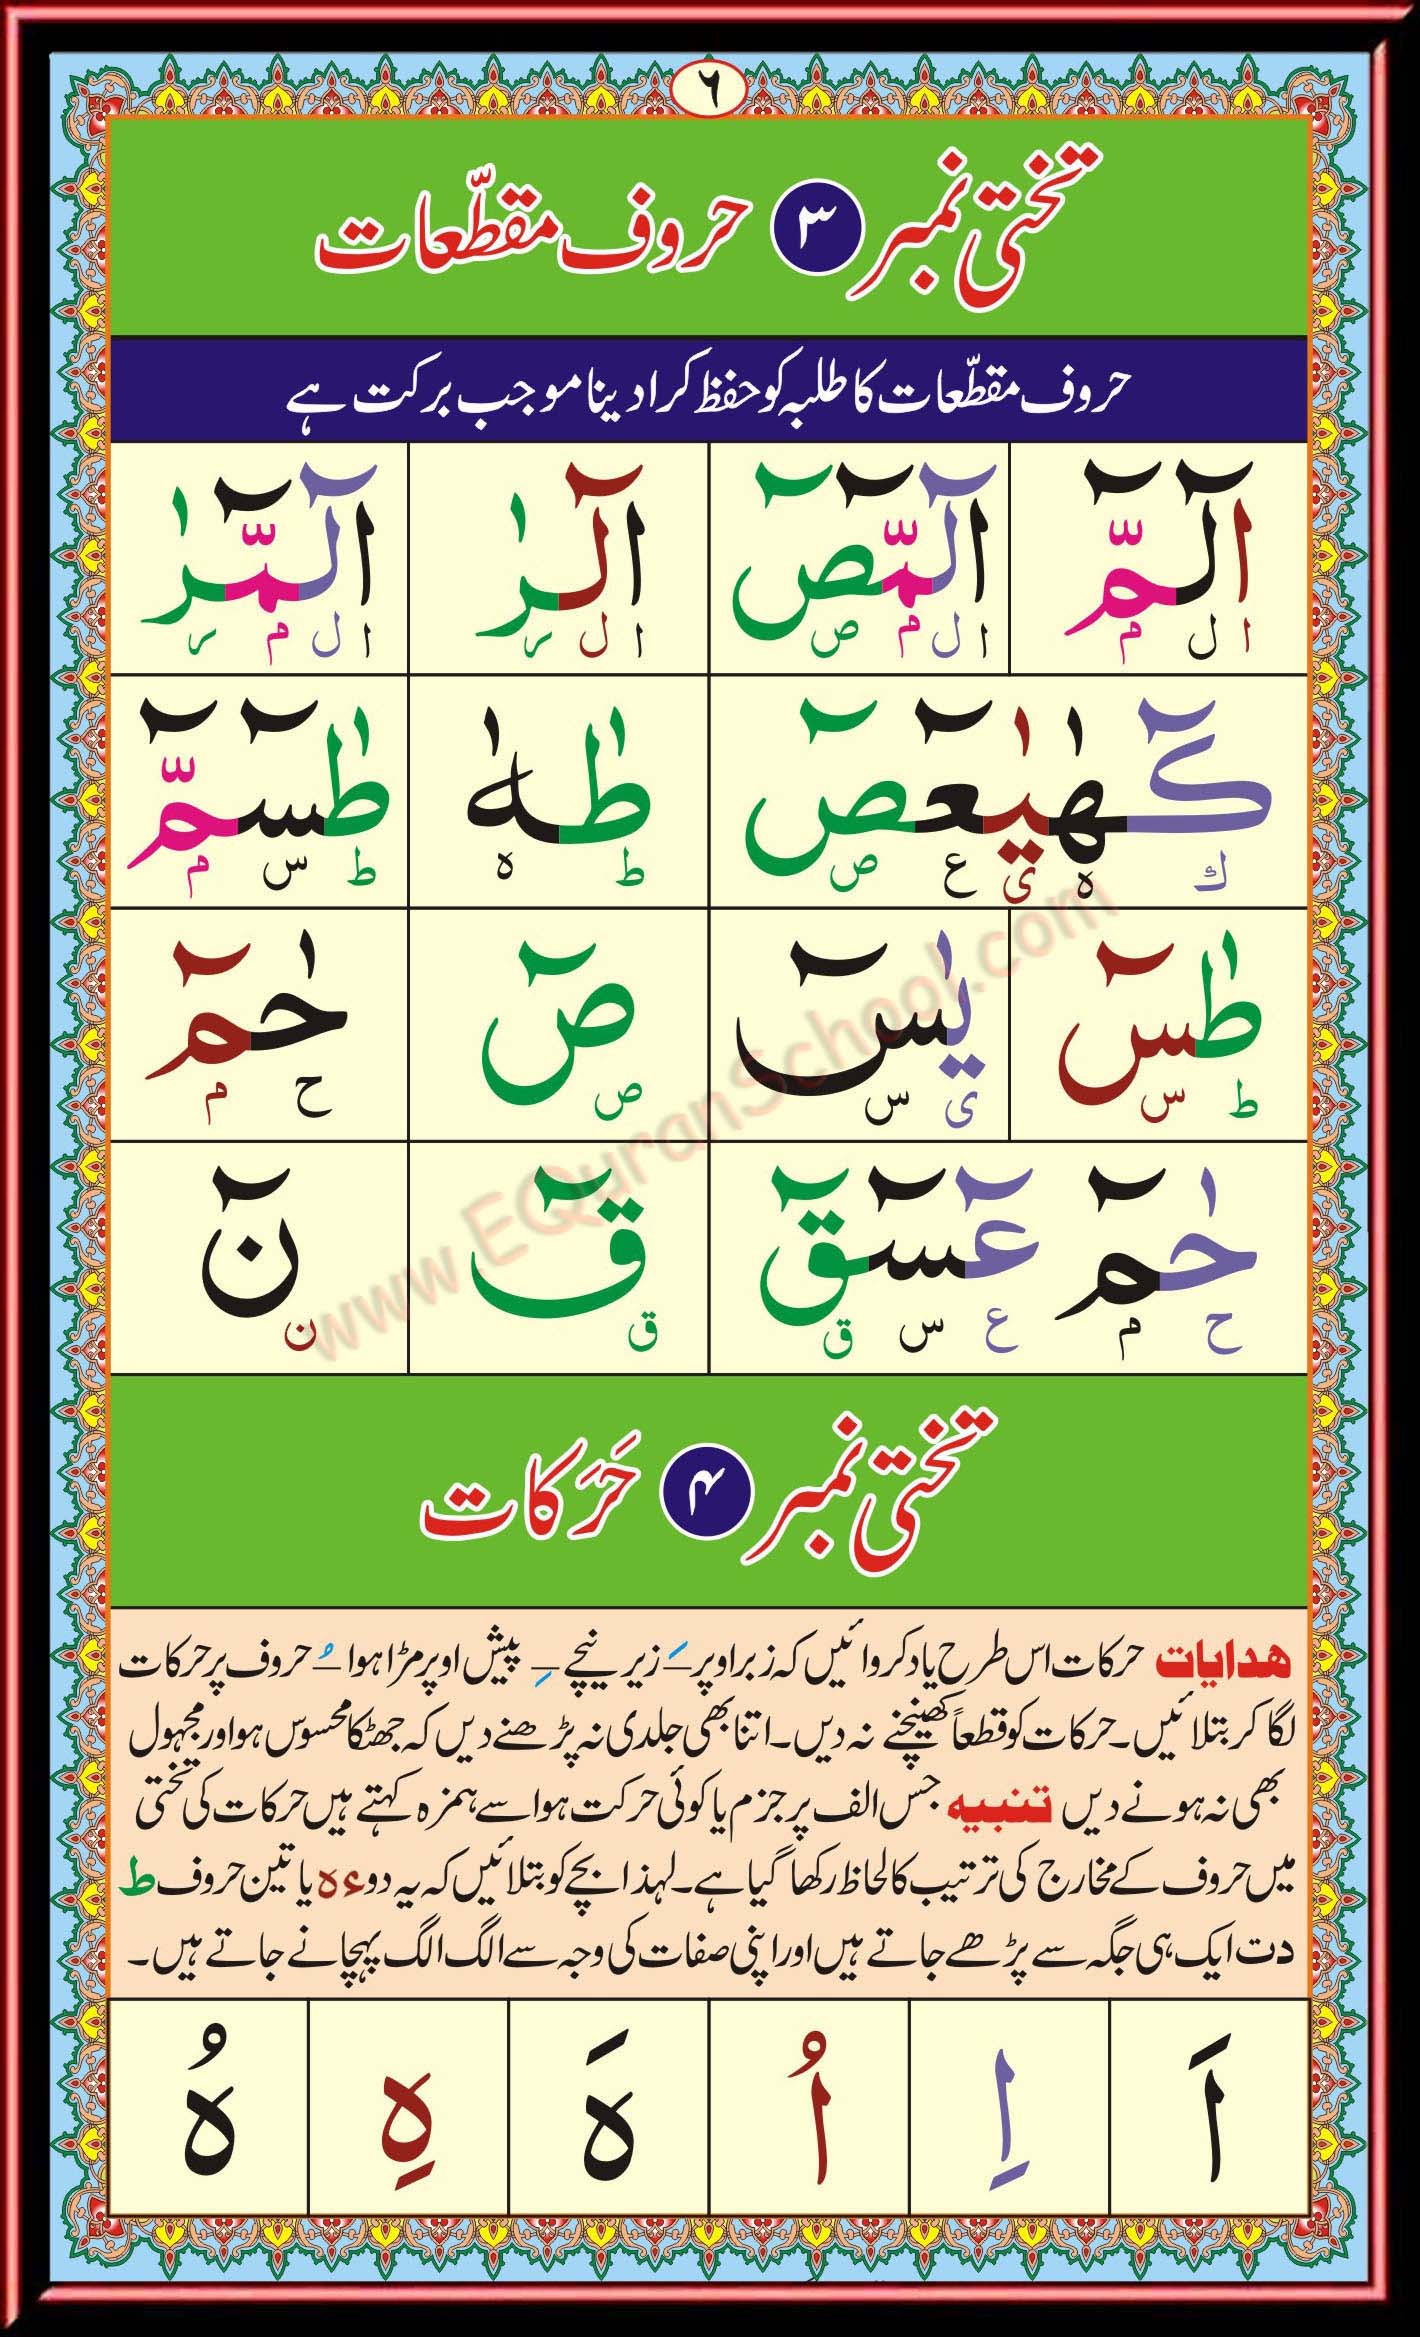 ٦
تختی نمبر ۳ حروف مقطّعات
حروف مقطّعات کا طلبہ کو حفظ کرا دینا موجب برکت ہے
الٓمّٓ الٓمّٓصٓ الٓرٰ الٓمّٓرٰ
ا ل م ا ل م ص ا ل ر ا ل م ر
كٓهٰيٰعٓصٓ طٰهٰ طٰسٓمّٓ
ك ه ی ع ص ط ه ط س م
طٰسٓ يٰسٓ صٓ حٰمٓ
ط س ی س ص ح م
حٰمٓ عٓسٓقٓ قٓ نٓ
ح م ع س ق ق ن
www.EQuranSchool.com
تختی نمبر ۴ حَرَکات
هدایات حرکات اس طرح یاد کروائیں کہ زبر اوپر ـَ زیر نیچے ـِ پیش اوپر مڑا ہوا ـُ حروف پر حرکات
لگا کر بتلائیں۔ حرکات کو قطعاً کھینچنے نہ دیں۔ اتنا بھی جلدی نہ پڑھنے دیں کہ جھٹکا محسوس ہو اور مجہول
بھی نہ ہونے دیں تنبیه جس الف پر جزم یا کوئی حرکت ہو اسے ہمزہ کہتے ہیں حرکات کی تختی
میں حروف کے مخارج کی ترتیب کا لحاظ رکھا گیا ہے۔ لہذا بچے کو بتلائیں کہ یہ دو ء ہ یا تین حروف ط
د ت ایک ہی جگہ سے پڑھے جاتے ہیں اور اپنی صفات کی وجہ سے الگ الگ پہچانے جاتے ہیں۔
اَ اِ اُ هَ هِ هُ